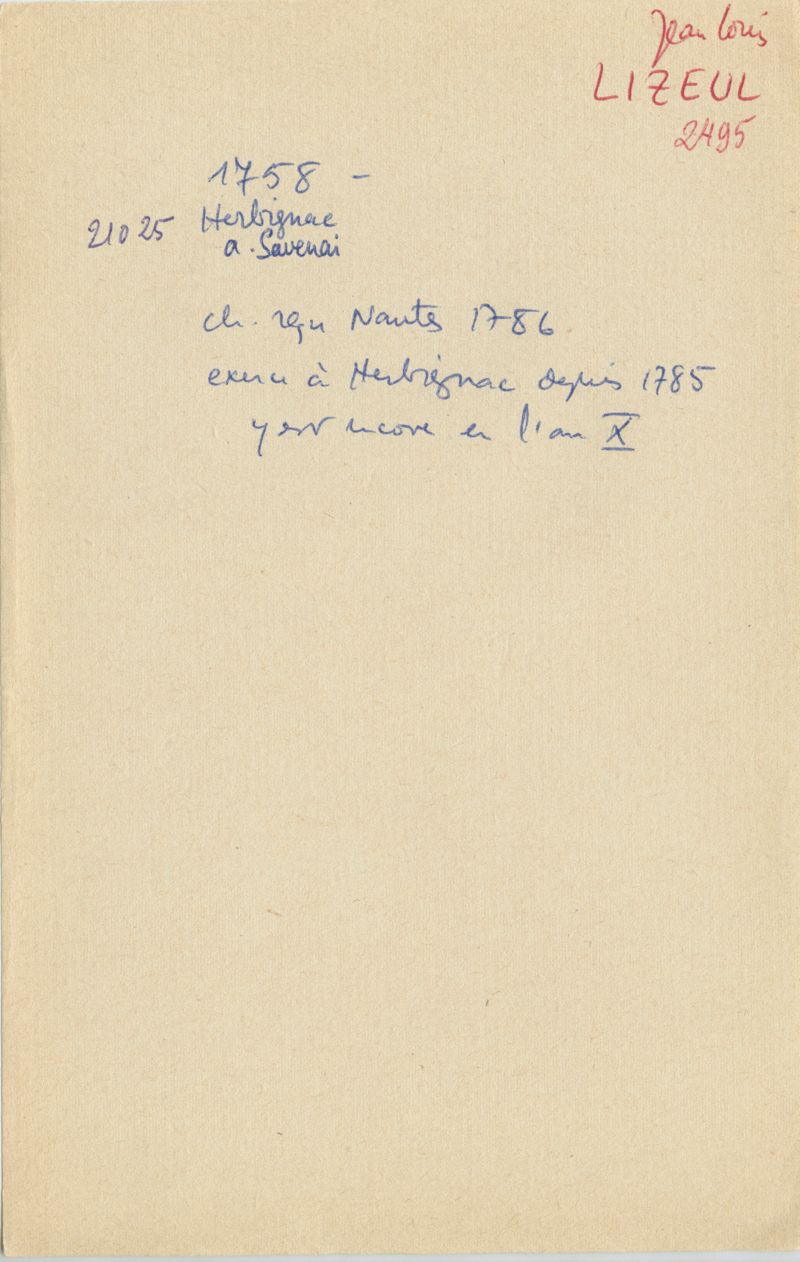 Jean Louis
LIZEUL
2495
1758 -
21025 Herbignac
a. Savenai
ch. reçu Nantes 1786
exerce à Herbignac depuis 1785
y est encore en l'an X